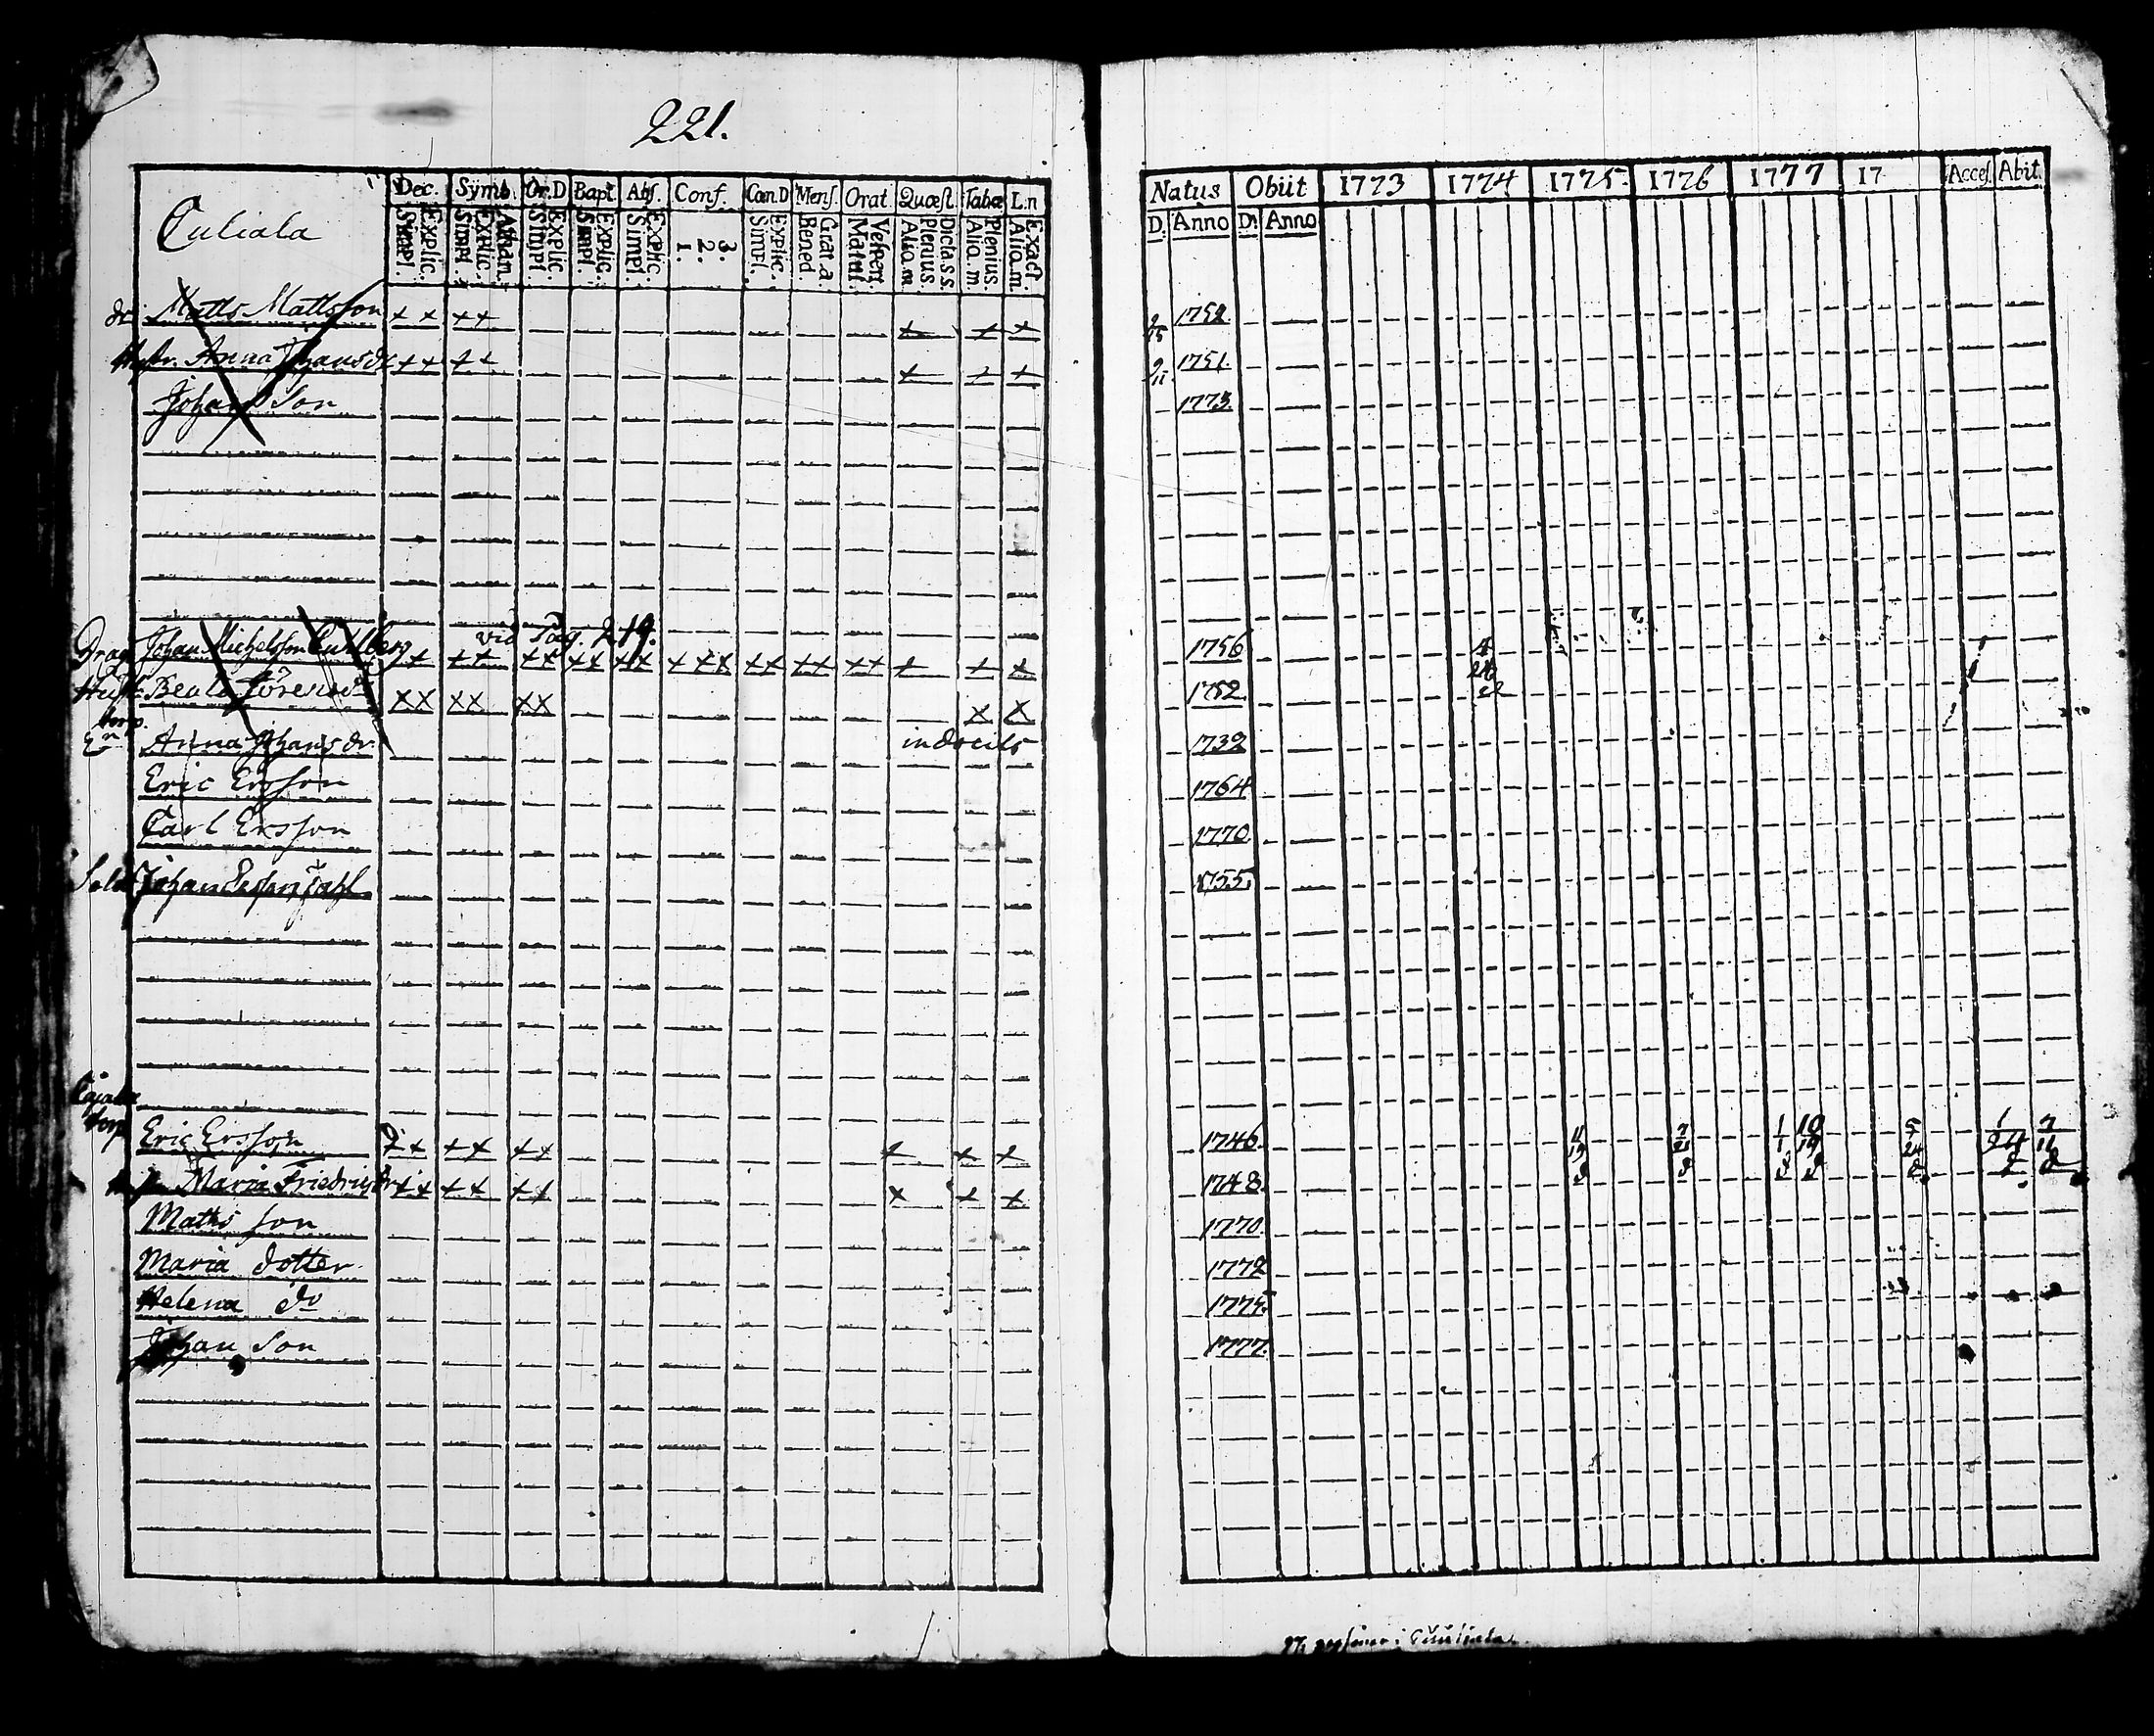 221.
Culiala Dec. Symb. Or.D Bapt. Abs. Conf. Cœn.D Mens. Orat. Quæst. Tabæ L.n
Explic. Simpl. Athan. Explic. Simpl. Explic. Simpl. Explic. Simpl. Explic. Simpl. 3. 2. 1. Explic. Simpl. Grat.a. Bened. Vespert. Matut. Dicta.s.s. Plenius. Alio.m Plenius. Alio.m Exact. Alio.m
Natus Obiit 1773 1774 1775. 1776 1777 17 Acces. Abit.
D. Anno D. Anno
Matts Mattsson + + ++ + + + 1752.
Hustr. Anna Johansdr ++ ++ + + + 9/11. 1751.
Johan Son 1773.
vid Pag. 219.
Drag Johan Michelsson ++ ++ ++ ++ +++ ++ ++ ++ + + + 1756 4
Hust Beata XX XX XX X X 1752. 24
torp.
En Anna Johansdr. indocils 1732
Eric Ersson 1764
Carl Ersson 1770.
Sold Johan 1755.
torp
Eric Ersson ++ ++ ++ + + + 1746. 11/19 7/21 1/1 10/19 5/24 1/24 7/11
Maria ++ ++ ++ x + + 1748.
Matts son 1770.
Maria dotter 1772
Helena do 1775.
Johan Son 1777.